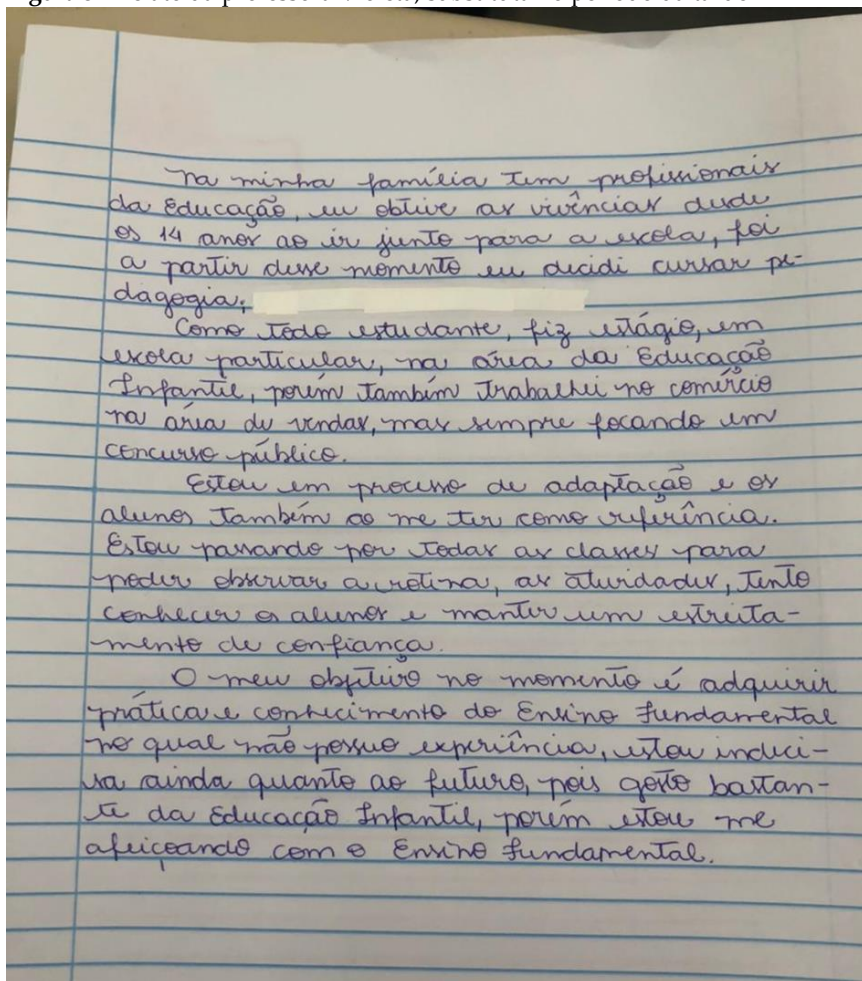 Na minha família tem profissionais
da Educação, eu obtive as vivências desde
os 14 anos ao ir junto para a escola, foi
a partir desse momento eu decidi cursar pe-
dagogia.
Como todo estudante, fiz estágio, em
escola particular, na área da Educação
Infantil, porém também trabalhei no comércio
na área de vendas, mas sempre focando em
concurso público.
Estou em processo de adaptação e os
alunos também ao me ter como referência.
Estou passando por todas as classes para
poder observar a rotina, as atividades, tento
conhecer os alunos e manter um estreita-
mento de confiança.
O meu objetivo no momento é adquirir
prática e conhecimento do Ensino Fundamental
no qual não possuo experiência, estou indeci-
sa ainda quanto ao futuro, pois gosto bastan-
te da Educação Infantil, porém estou me
afeiçoando com o Ensino Fundamental.